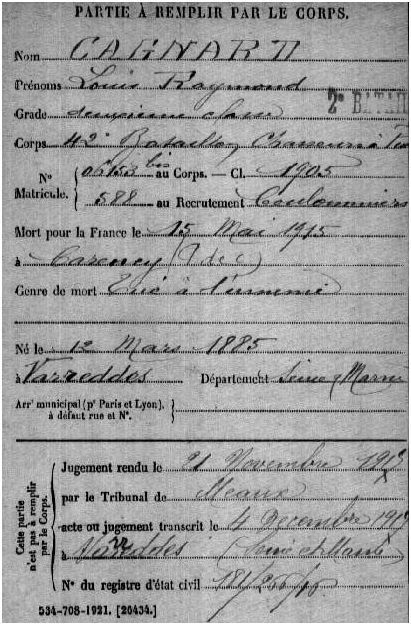 PARTIE À REMPLIR PAR LE CORPS.
Nom CAGNART
Prénoms Louis Raymond
2e BATAIL
Grade deuxième classe
Corps 42e Bataillon Chasseurs à
No Matricule. { bis au Corps. — Cl. 1905
588 au Recrutement Coulommiers
Mort pour la France le 15 Mai 1915
à Carency (P de C)
Genre de mort Tué à l'ennemi
Né le 12 Mars 1885
à Varreddes Département Seine & Marne
Arrt municipal (pr Paris et Lyon), à défaut rue et No. }
Cette partie n'est pas à remplir par le Corps.
Jugement rendu le 21 Novembre
par le Tribunal de Meaux
acte ou jugement transcrit le 4 Décembre
à Varreddes Seine et Marne
No du registre d'état civil
534-708-1921. [26434.]